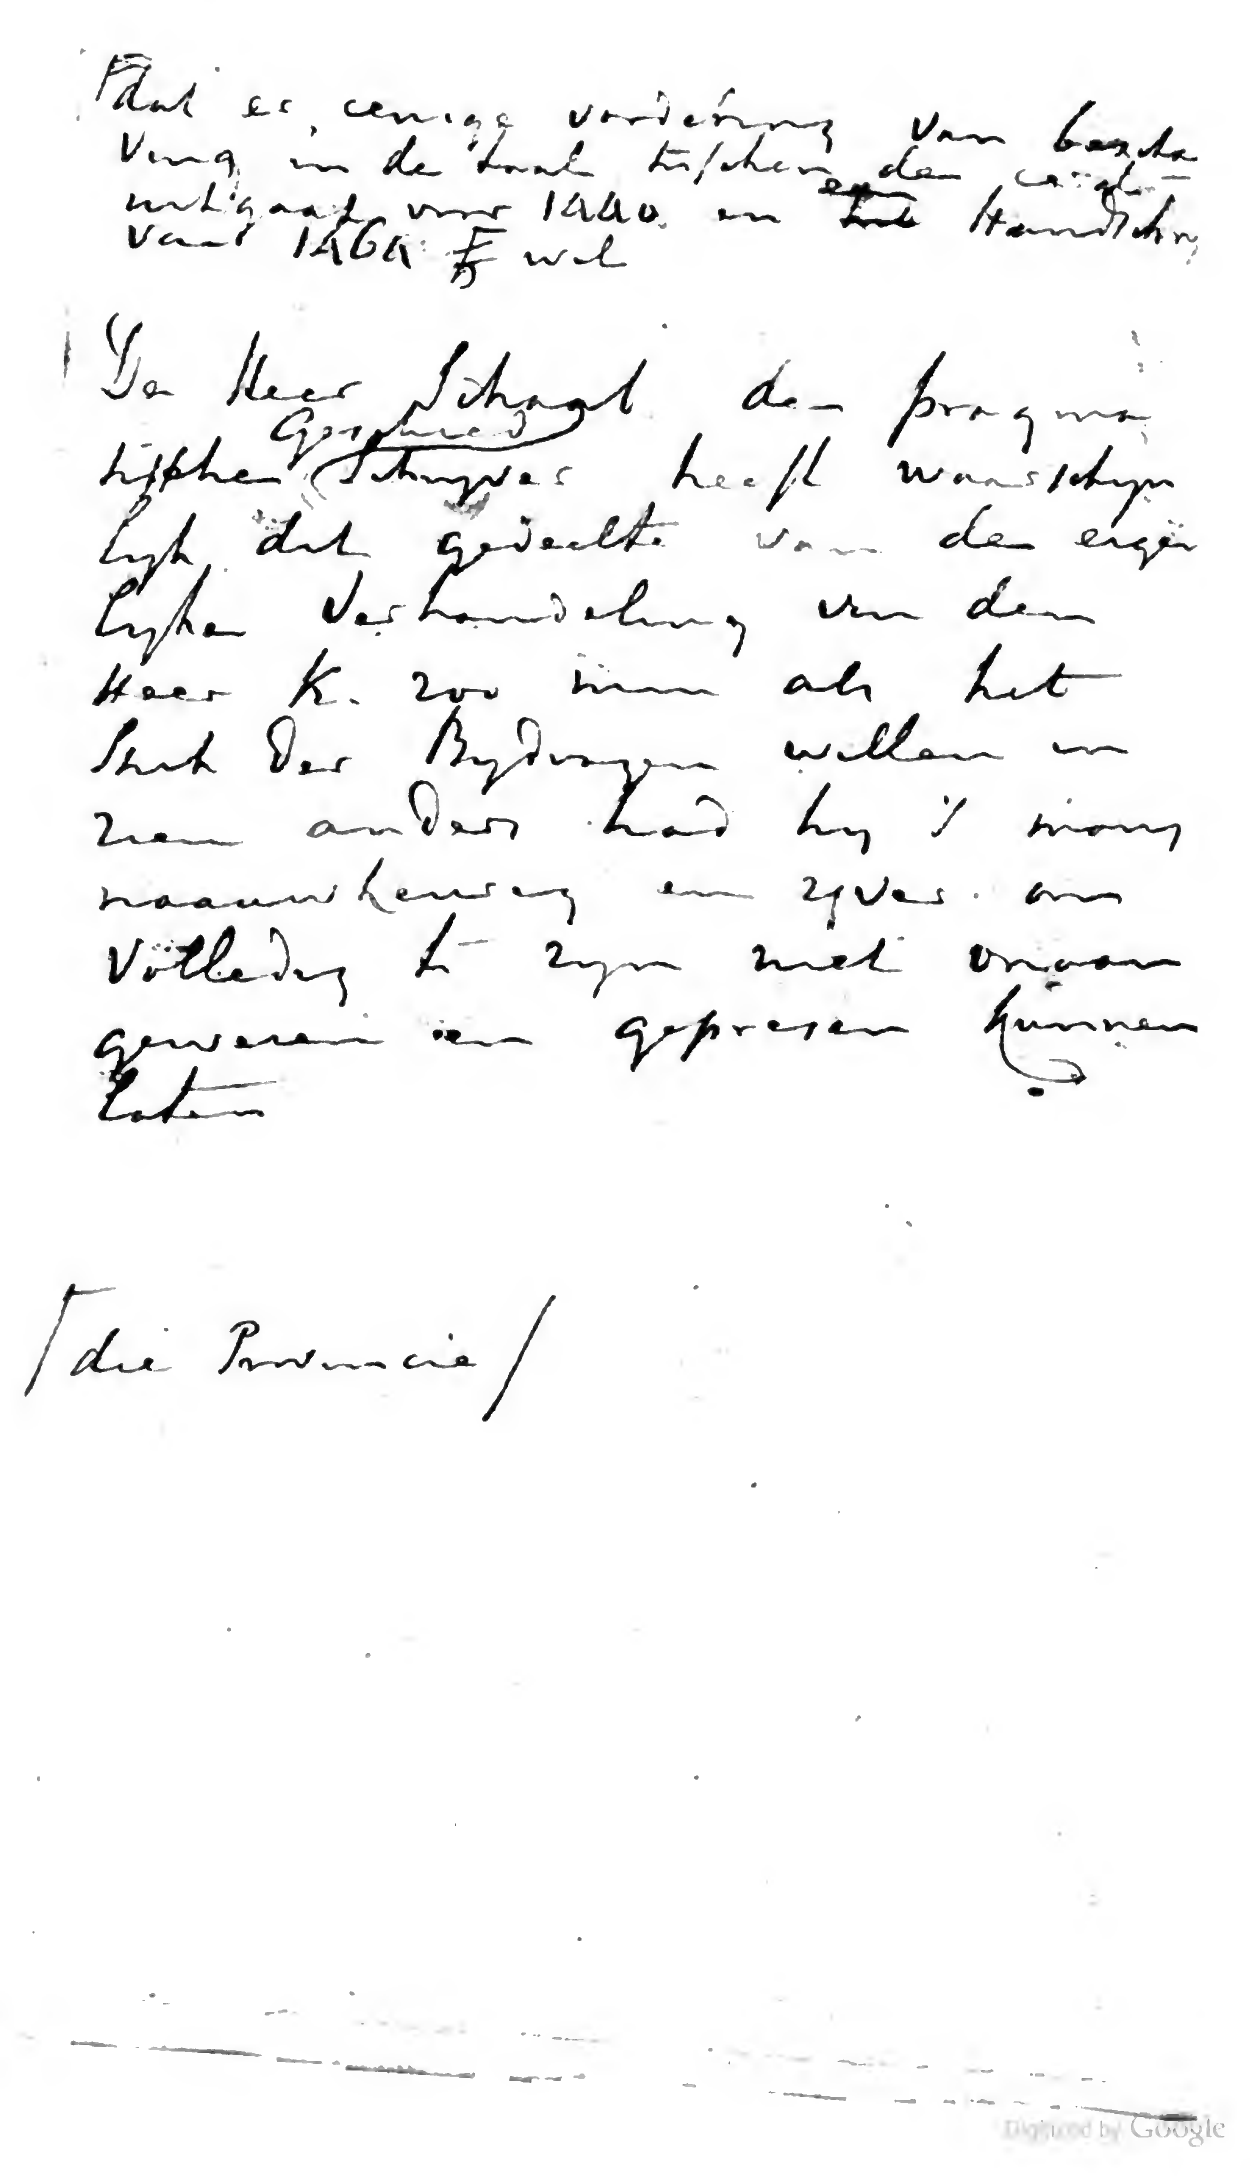 dat er, eenige vordering van bescha
ving in de taal tusschen de
uitgaaf voor 1440 en een Handschr
van wel
De Heer Schaab den pragma
tischen Geschied Schryver heeft waarschyn
lyk dit gedeelte van de eigen
lyke Verhandeling van den
Heer K. zoo min als het
Stuk der Bydragen willen in
zien anders had hy 's mans
naauwkeurig en yver om
Volledig te zyn niet onaan
gewezen en geprezen kunnen
laten
/ die Provincie /
Digitized by Google